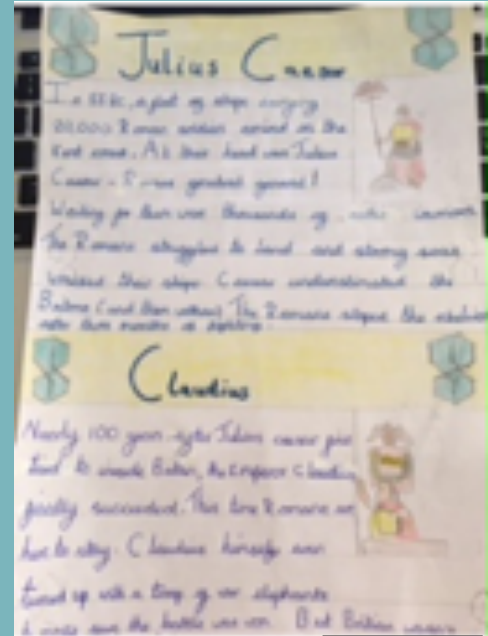 Julius Caesar
In 55 BC, a fleet of ships carrying
20,000 Roman soldiers arrived on the
Kent coast. At their head was Julius
Caesar - Romes greatest general!
Waiting for them were thousands of warriors.
The Romans struggled to land and strong
their ships Caesar underestimated the
The Romans the
after two months of fighting.
Claudius
Nearly 100 years after Julius caesar first
tried to invade Britain, the emperor Claudius
finally succeeded. This time Romans are
here to stay. Claudius himself even
turned up with a troop of war elephants
once the battle was won. But